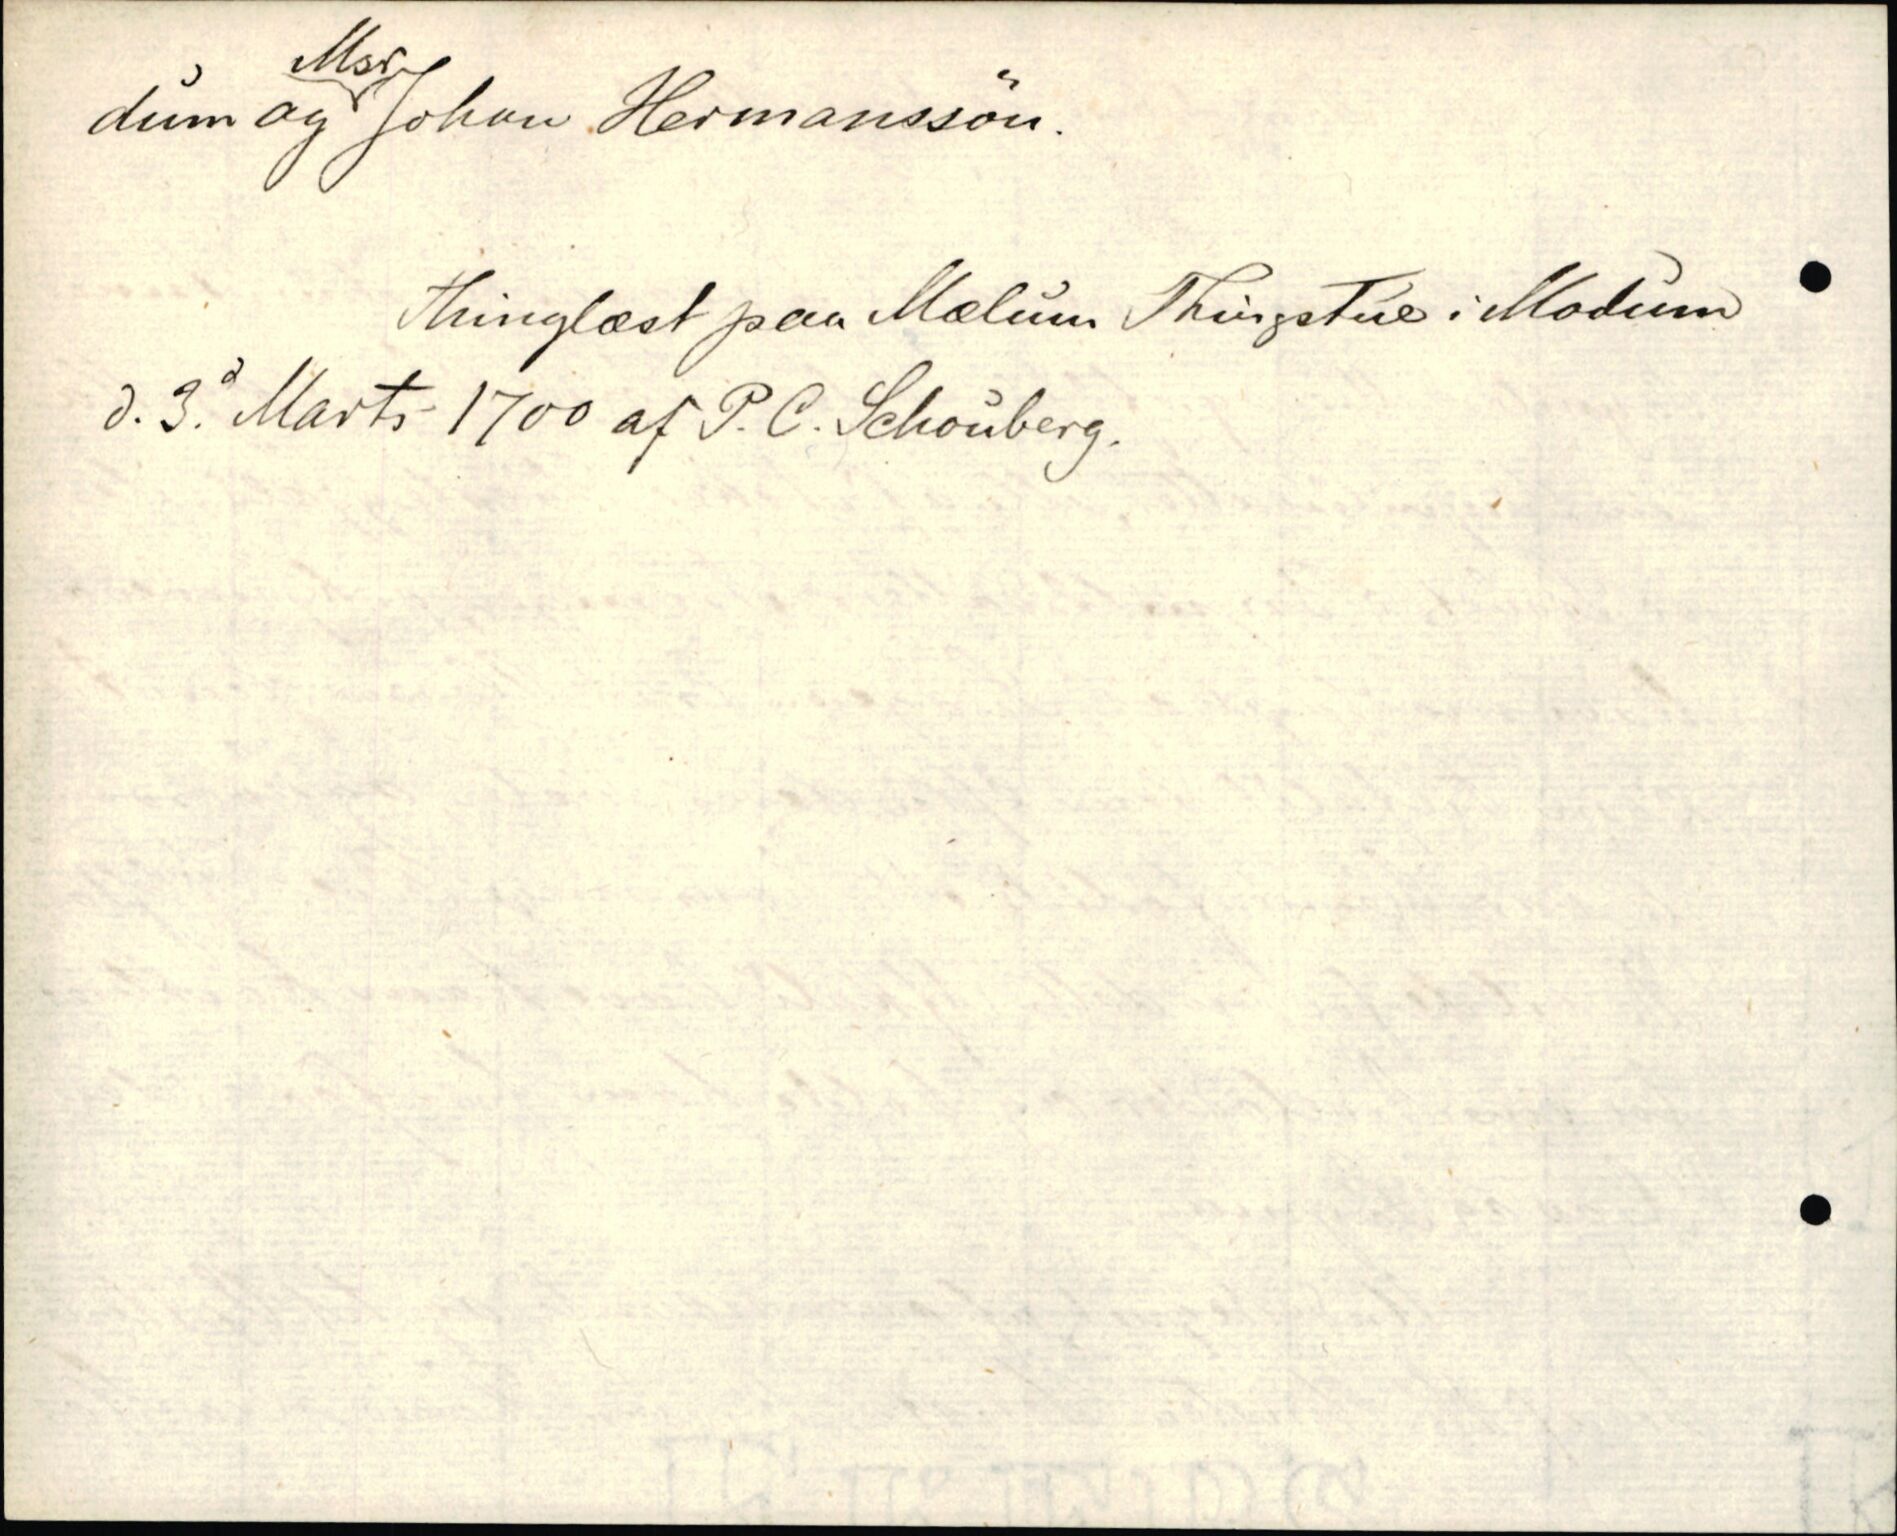 dum og Msr Johan Hermanssön.
Thinglæst paa Mælum Thingstue i Modum
d. 3.d Marts 1700 af P. C. Schouberg.